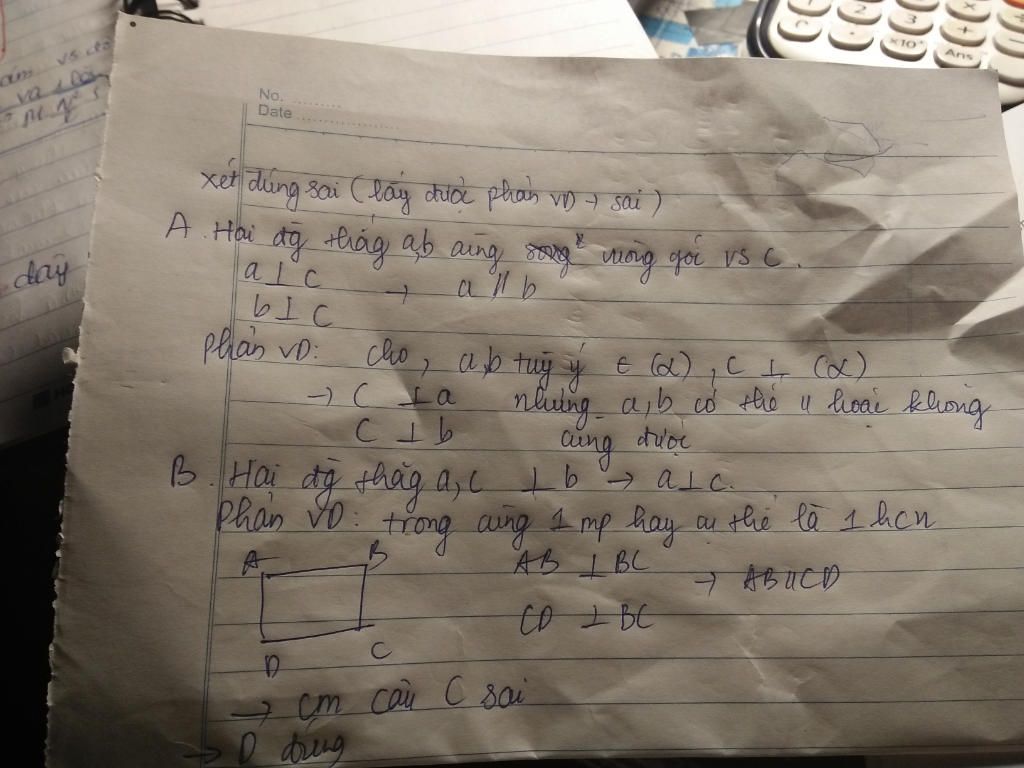 No. ..........
Date ....................
xét đúng sai (lấy được phản VD → sai)
A. Hai đg thẳg a,b cùng vuông góc vs c.
a ⊥ c → a // b
b ⊥ c
Phản VD: cho, a,b tuỳ ý ∈ (α), c ⊥ (α)
→ c ⊥ a nhưng a,b có thể // hoặc không
c ⊥ b cũng được
B. Hai đg thẳg a,c ⊥ b → a ⊥ c.
Phản VD: trong cùng 1 mp hay cụ thể là 1 hcn
A B
AB ⊥ BC → AB // CD
CD ⊥ BC
D C
→ cm câu C sai
→ D đúng
đáy
C 1 2 3 × ÷
0 . ×10ˣ Ans